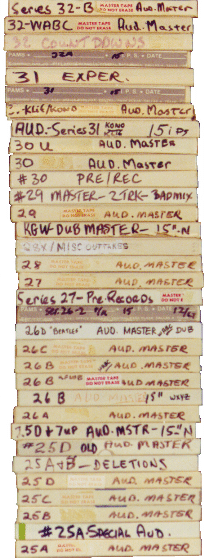 Series 32-B MASTER TAPE DO NOT ERASE Aud. Master
32-WABC MASTER TAPE DO NOT ERASE Aud. Master
32 COUNTDOWNS
PAMS 32A 15 I.P.S. DATE
31 EXPER.
PAMS 31 15 I.P.S. DATE
KLIF/KONO Aud. Master
AUD.-Series 31 KONO KLIF 15 IPS
30 U Aud. Master
30 Aud. Master
#30 PRE/REC
#29 MASTER-2TRK-BADMIX
29 AUD. MASTER
KGW-DUB MASTER-15"-N
28X/MISC OUTTAKES
28 AUD. MASTER
27 AUD. MASTER
Series 27-Pre-Records MASTER T DO NOT E
PAMS Ser. 26-2 15 I.P.S. 12/63
26b "BEATLES" AUD. MASTER DUB
26C AUD. MASTER
26B AUD. MASTER
26B MASTER TAPE DO NOT ERASE AUD. MASTER
26 B AUD. MASTER 15" WXYZ
26A AUD. MASTER
25D+7UP AUD. MSTR-15"-N
#25D OLD AUD. MASTER
25A+B-DELETIONS
25D AUD. MASTER
25C AUD. MASTER
25B AUD. MASTER
#25A-SPECIAL AUD.
25A MASTER TAPE DO NOT ERASE AUD. MASTER